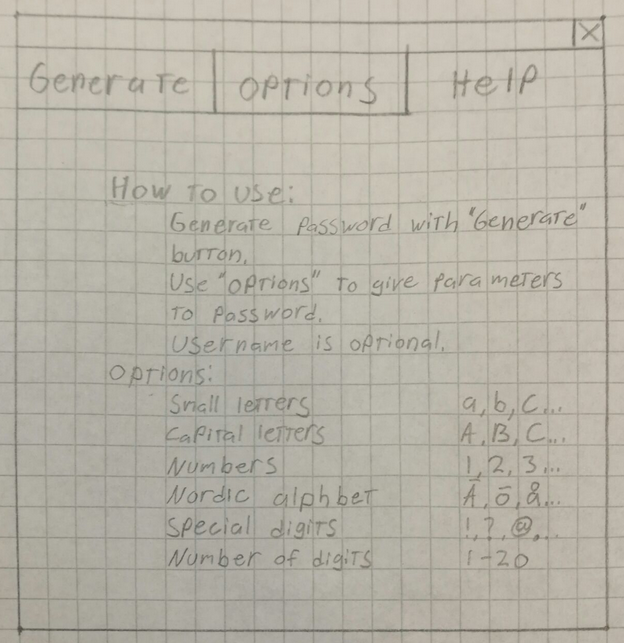 X
Generate Options Help
How to use:
Generate password with "Generate"
button.
Use "options" to give parameters
to password.
Username is optional.
Options:
Small letters a, b, c...
Capital letters A, B, C...
Numbers 1, 2, 3...
Nordic alphbet Ä, ö, å...
Special digits !, ?, @,...
Number of digits 1-20